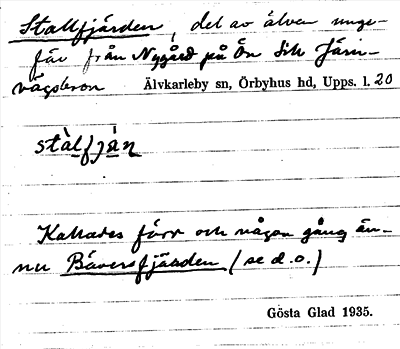 Stallfjärden, del av älven unge-
fär från Nygård på Ön till Järn-
vägsbron Älvkarleby sn, Örbyhus hd, Upps. l. 20
stàlfjàn
Kallades förr och någon gång än-
nu Bäversfjärden (se d.o.)
Gösta Glad 1935.